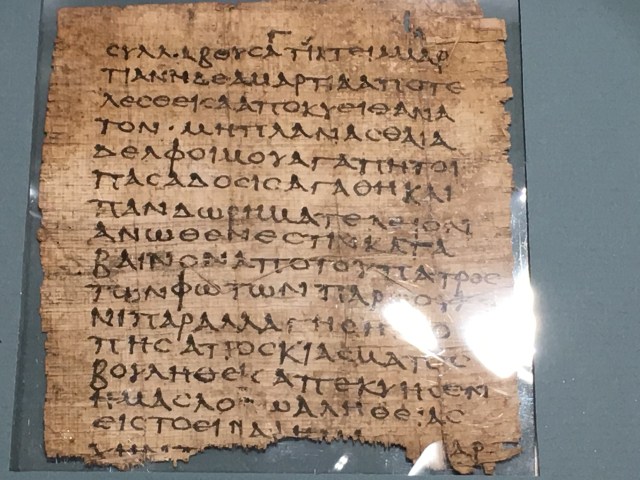 ϹΥΛΛΑΒΟΥϹΑΤΙΚΤΕΙΑΜΑΡ
ΤΙΑΝΗΔΕΑΜΑΡΤΙΑΑΠΟΤΕ
ΛΕϹΘΕΙϹΑΑΠΟΚΥΕΙΘΑΝΑ
ΤΟΝ·ΜΗΠΛΑΝΑϹΘΑΙΑ
ΔΕΛΦΟΙΜΟΥΑΓΑΠΗΤΟΙ
ΠΑϹΑΔΟϹΙϹΑΓΑΘΗΚΑΙ
ΠΑΝΔΩΡΗΜΑΤΕΛΕΙΟΝ
ΑΝΩΘΕΝΕϹΤΙΝΚΑΤΑ
ΒΑΙΝΟΝΑΠΟΤΟΥΠΑΤΡΟϹ
ΤΩΝΦΩΤΩΝΠΑΡ
ΝΙΠΑΡΑΛΛΑΓΗϹΗ
ΠΗϹΑΠΟϹΚΙΑϹΜΑΤΟϹ
ΒΟΥΛΗΘΕΙϹΑΠΕΚΥΗϹΕΝ
ΗΜΑϹΛΟΓΩΑΛΗΘΕΙΑϹ
ΕΙϹΤΟΕΙΝΑΙ